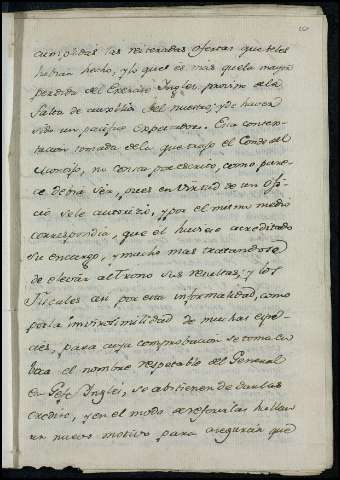 cumplidas las reiteradas ofertas que se les
habian hecho, y lo que es mas que la mayor
perdida del Exercito Ingles provino de la
falta de auxilio del nuestro; y de haver
sido un pacifico expectador. Esta contex-
tacion tomada de la que trajo el Conde del
Montijo, no consta por escrito, como pare-
ce debia ser, pues en virtud de un ofi-
cio se le autorizó, y por el mismo medio
correspondia, que el huviese acreditado
su encargo, y mucho mas tratandose
de elevar al Trono sus resultas; y los
Fiscales asi por esta informalidad, como
por la inverosimilidad de muchas espe-
cies, para cuya comprobacion se toma en
boca el nombre respetable del General
en Gefe Ingles, se abstienen de darlas
credito, y en el modo de referirlas hallan
un nuevo motivo para asegurar que